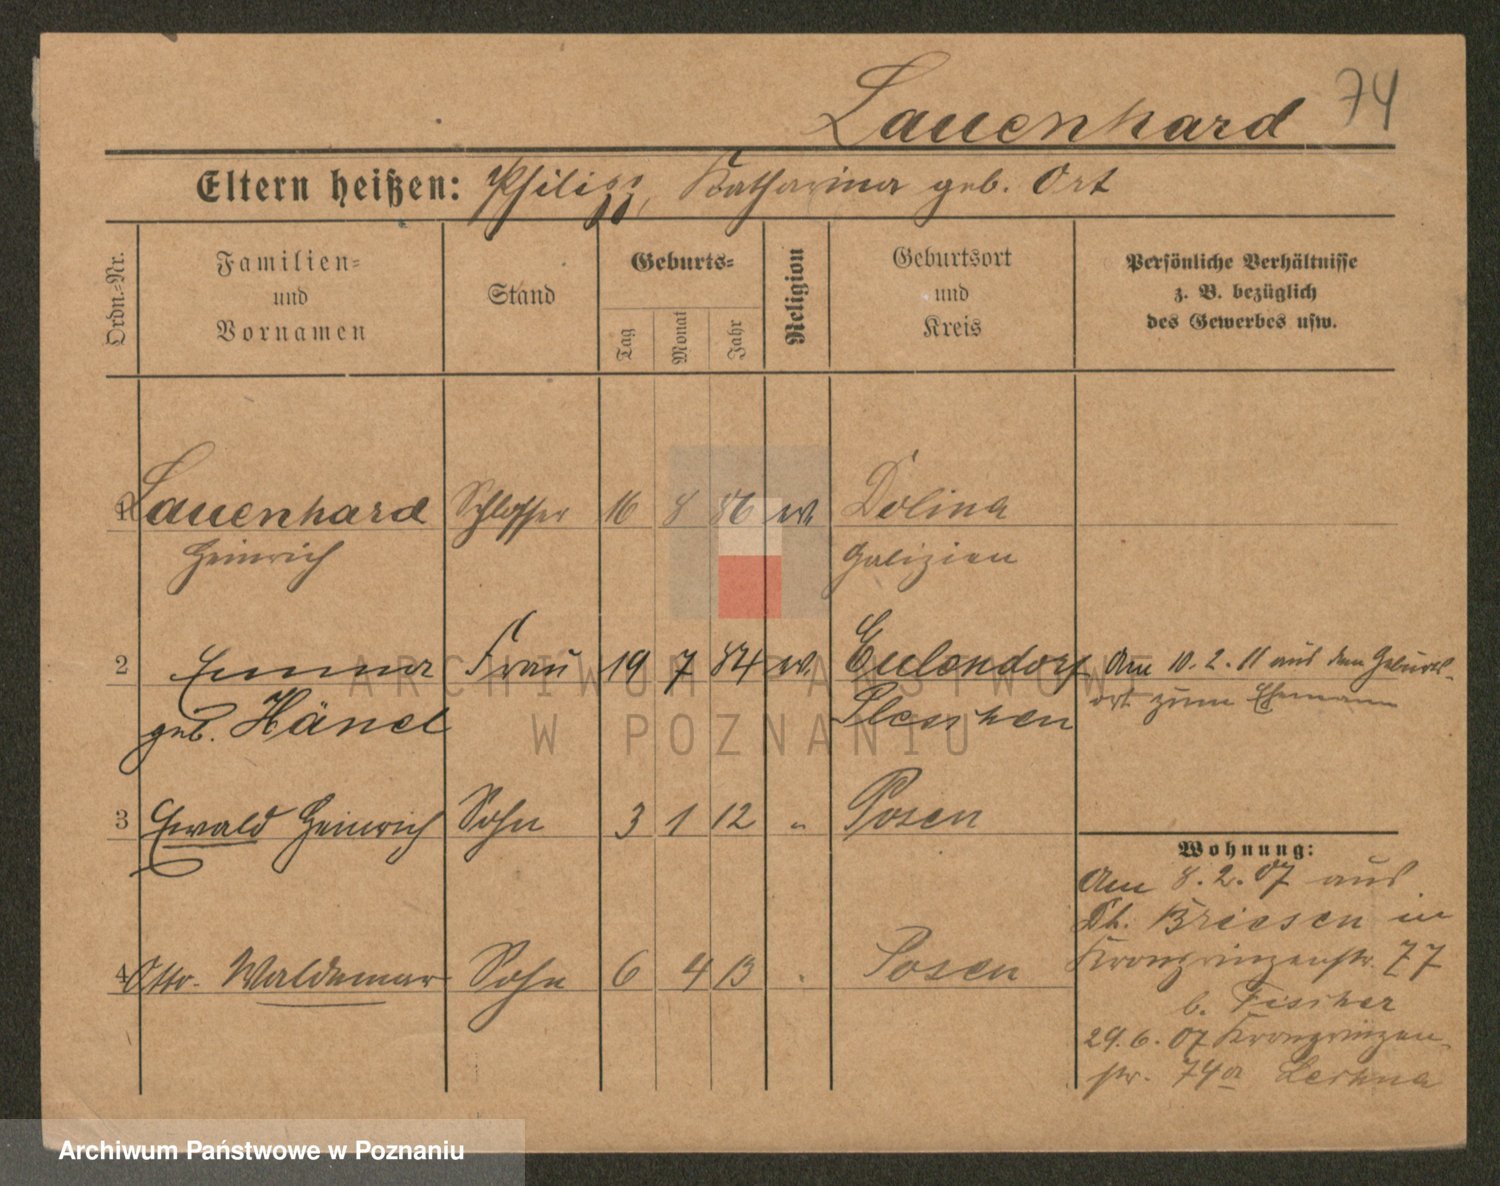 74
Lauenhard
Eltern heißen: Philipp, Katharina geb. Ort
Ordn.-Nr.
Familien-
und
Vornamen
Stand
Geburts-
Tag
Monat
Jahr
Religion
Geburtsort
und
Kreis
Persönliche Verhältnisse
z. B. bezüglich
des Gewerbes usw.
1 Lauenhard Schlosser 16 8 86 ev. Dolina
Heinrich Galizien
2 Emma Frau 19 7 84 ev. Eulendorf Am 10.2.11 aus dem Geburts-
geb. Hänel Pleschen ort zum Ehemann
3 Ewald Heinrich Sohn 3 1 12 " Posen
Wohnung:
Am 8.2.07 aus
Briesen in
4 Otto Waldemar Sohn 6 4 13 " Posen
Kronprinzenstr. 77
b. Fischer
29.6.07 Kronprinzen-
str. 74a
ARCHIWUM PAŃSTWOWE
W POZNANIU
Archiwum Państwowe w Poznaniu